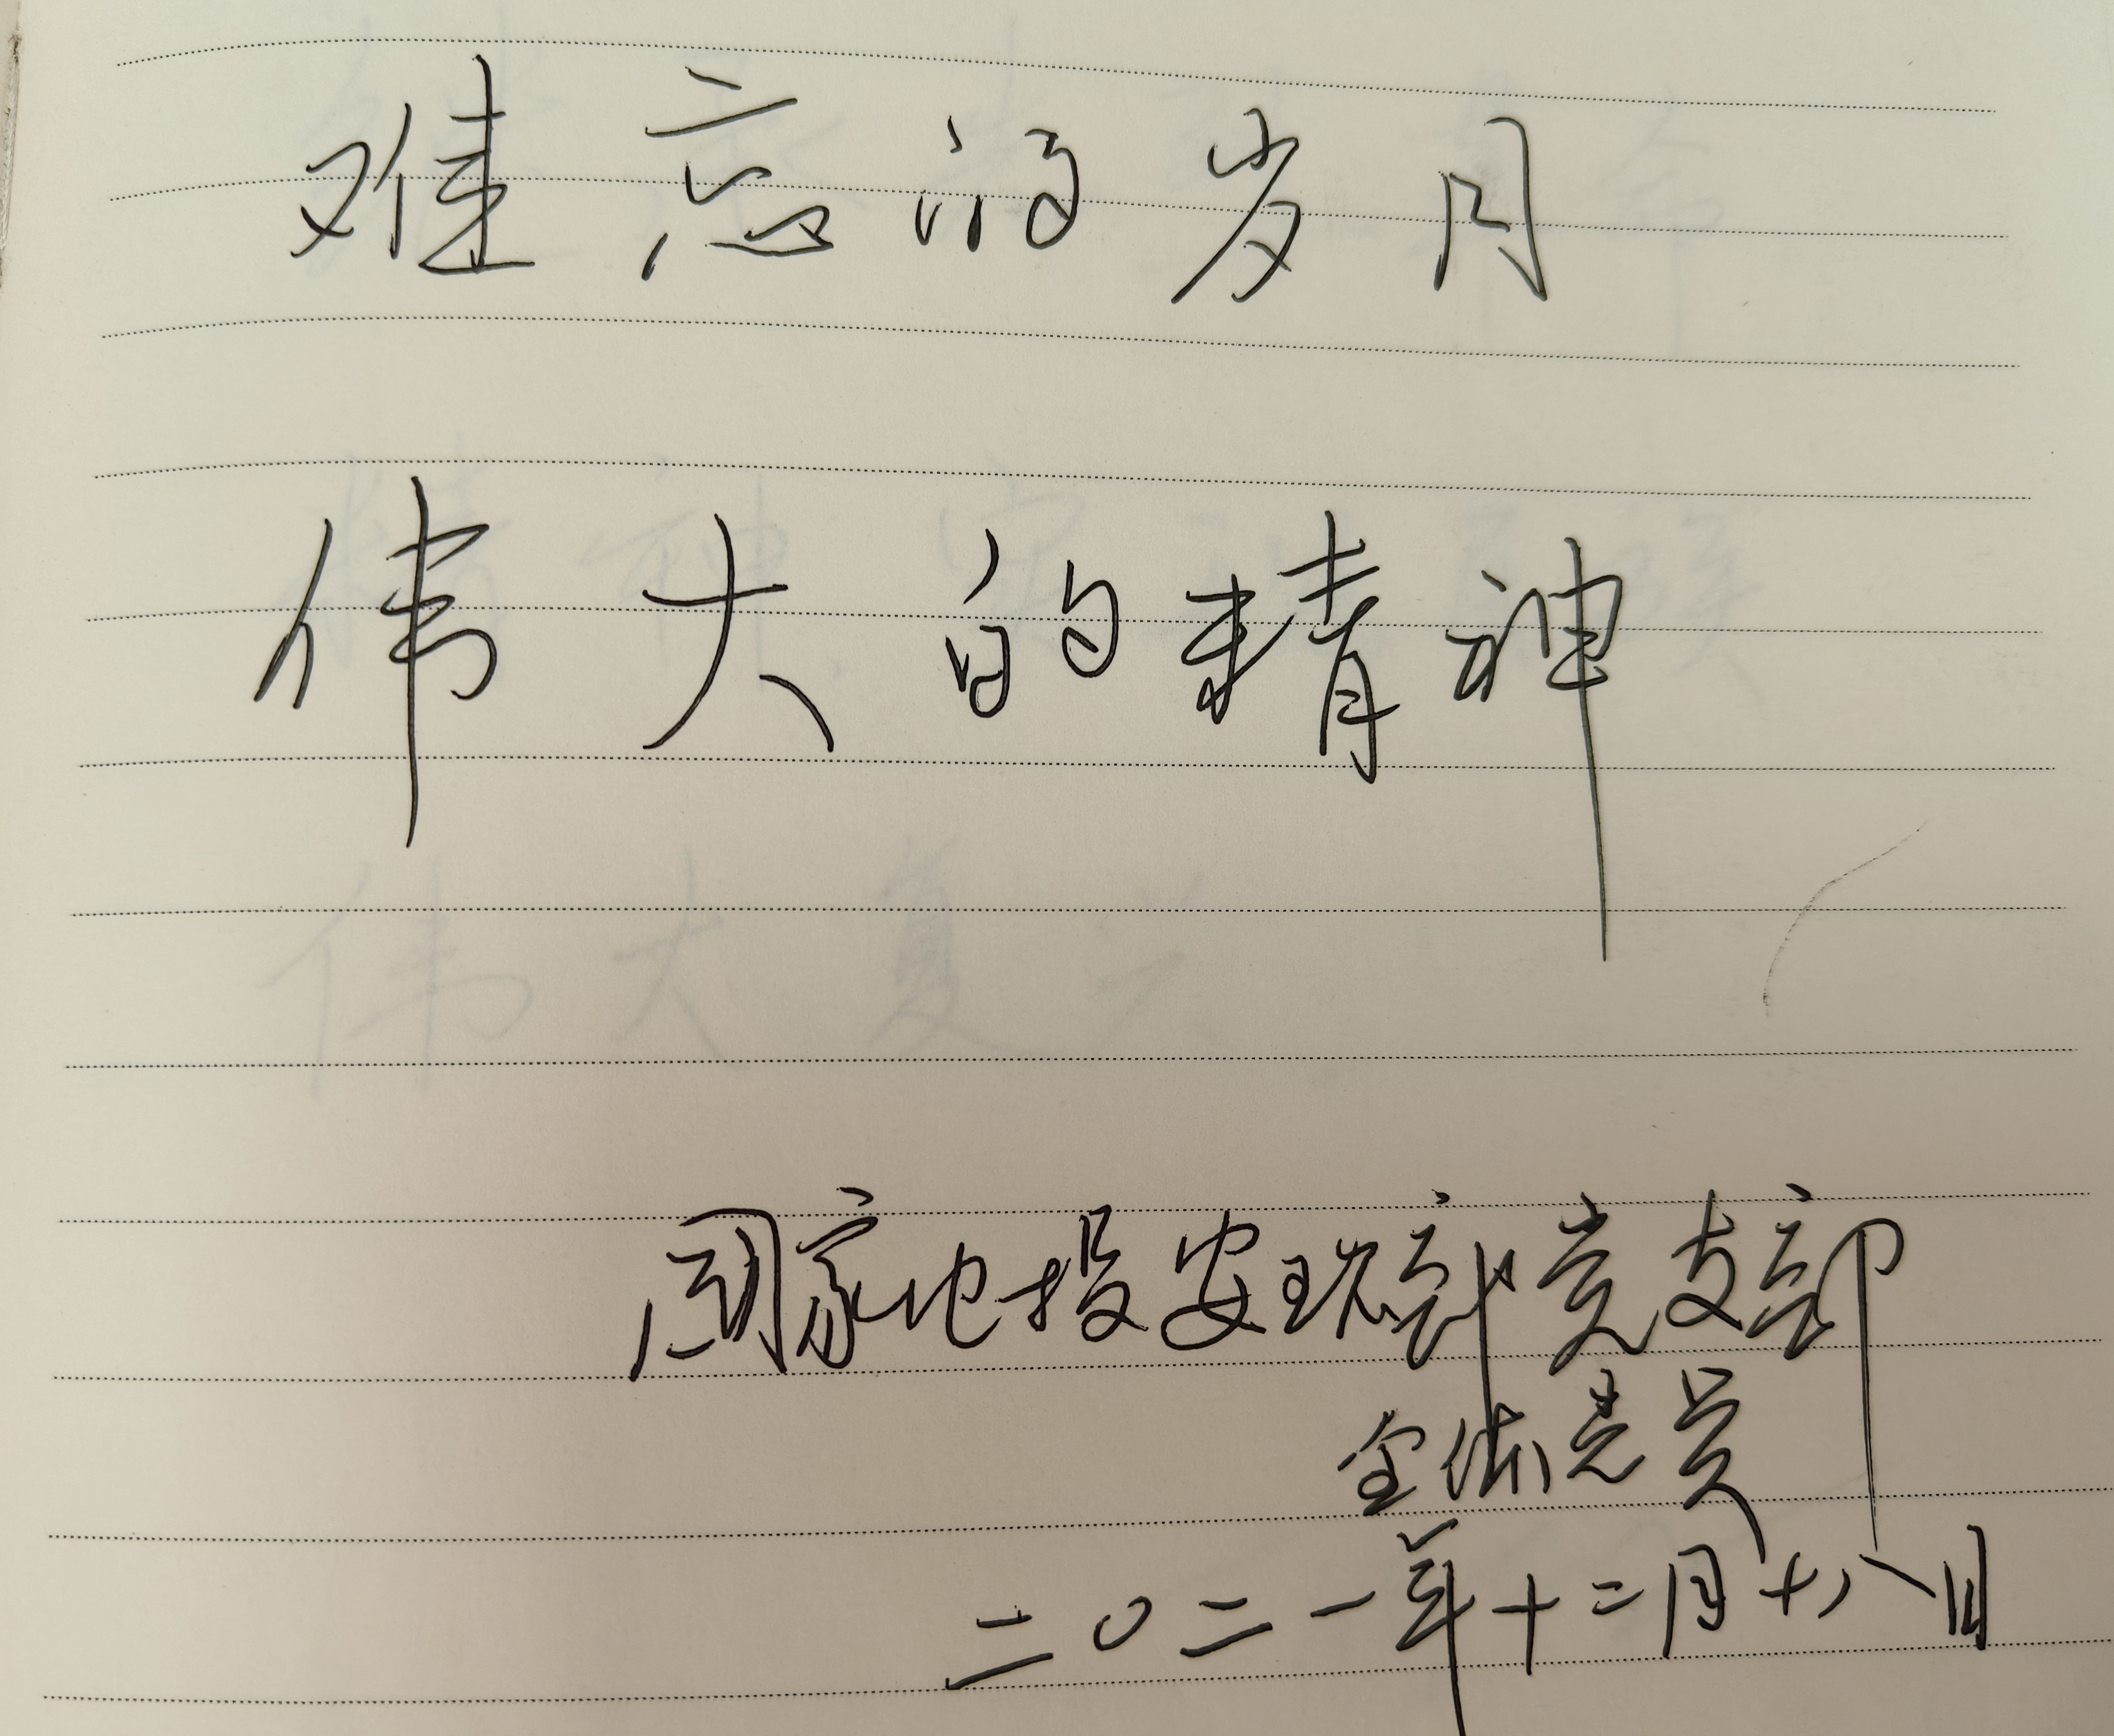 难忘的岁月
伟大的精神
国家电投安环部党支部
全体党员
二〇二一年十二月十八日